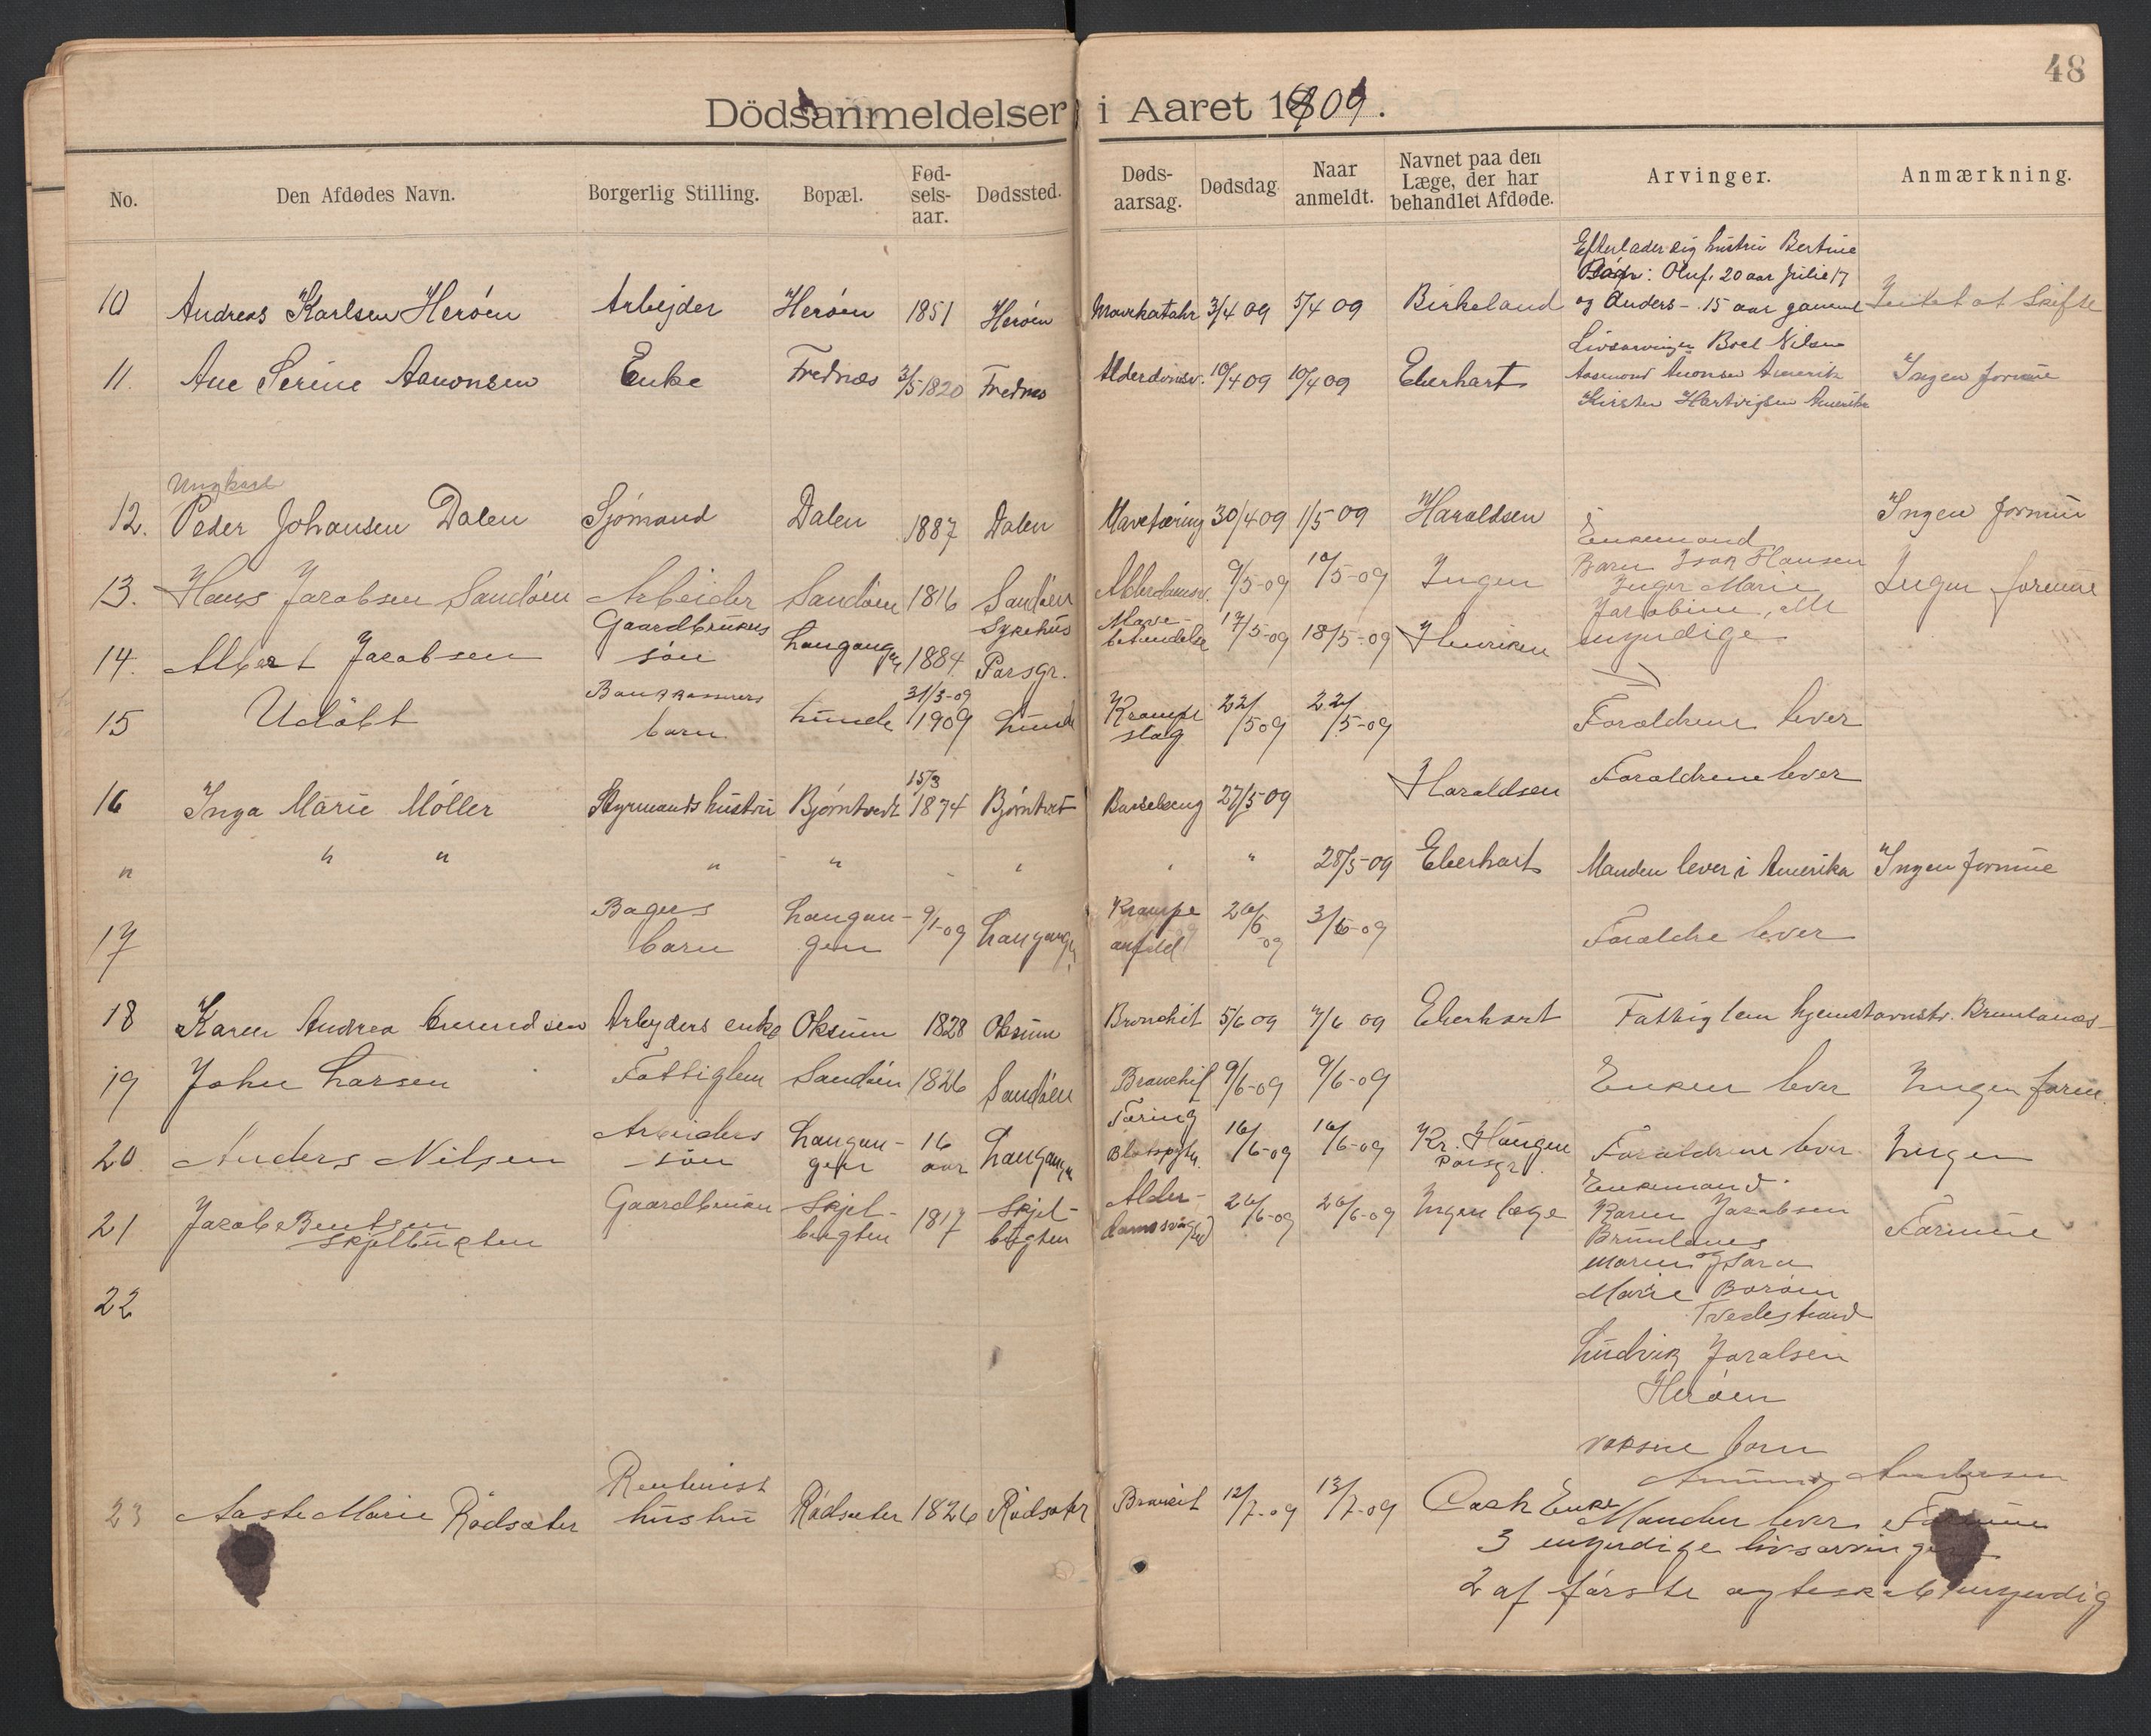 48
Dödsanmeldelser i Aaret 1909.
No. Den Afdødes Navn. Borgerlig Stilling. Bopæl. Fød-selsaar. Dødssted. Døds-aarsag. Dødsdag. Naar anmeldt. Navnet paa den Læge, der har behandlet Afdøde. Arvinger. Anmærkning.
Efterlader sig hustru Bertine
Børn: Oluf, 20 aar Julie 17
10 Andreas Karlsen Herøen Arbejder Herøen 1851 Herøen Mavekatahr 3/4 09 5/4 09 Birkeland og Anders - 15 aar gammel Intet at Skifte
Livsarvinger Boel Nilsen
11. Ane Serine Aanonsen Enke Frednæs 3/5 1820 Frednæs Alderdomsv. 10/4 09 10/4 09 Eberhart Aasmond Anonsen Amerik Ingen formue
Kirsten Hartvigsen Amerika
Ungkarl
12. Peder Johansen Dalen Sjømand Dalen 1887 Dalen Mavetæring 30/4 09 1/5 09 Haraldsen Ingen formue
Enkemand
Barn Isak Hansen
13. Hans Jacobsen Sandöen Arbeider Sandöen 1816 Sandöen Alderdomsv. 9/5-09 10/5-09 Ingen Inger Marie Ingen formue
Jacobine, alle
Gaardbrukers Sykehus Mave- 17/5-09
14. Albert Jacobsen sön Langangen 1884. Porsgr. betendelse 18/5-09 Henriksen myndige
31/3-09
15 Udöbt barn Lunde 1909 Lunde Krampe slag 22/5 09 22/5-09 Foraldrene lever
15/3
16 Inga Marie Möller Styrmands hustru Bjørntvedt 1874 Bjørntvet Barselseng 27/5-09 Haraldsen Foraldrene lever
" " " " " " " 28/5-09 Eberhart Manden lever i Amerika Ingen formue
17 Bagers barn Langangen 9/1-09 Langangen Krampe anfald 20/6 -09 3/6-09 Foraldre lever
18 Karen Andrea Amundsen Arbejders enke Oksum 1828 Oksum Bronchit 5/6 09 7/6 09 Eberhart Fattiglem hjemstavnstr. Brunlanæs
19 John Larsen Fattiglem Sandöen 1826 Sandöen Bronchit 9/6-09 9/6-09 Enken lever Ingen form.
Tæring
20 Anders Nilsen Arbeiders sön Langangen 16 aar Langangen Blodspytn. 16/6-09 16/6-09 Kr. Haugen Porsgr. Foraldrene lever Ingen
Enkemand.
21 Jacob Bentsen Skjelbukten Gaardbruker Skjelbugten 1817 Skjelbugten Alderdomssvaghed 26/6-09 26/6-09 Ingen læge Karen Jacobsen Formue
Brunlanes
Maren og Sara
22 Marie Boröen
Tvedestrand
Ludvik Jacobsen
Heröen
voksne barn
Amund Andersen
23 Aaste Marie Rödsæter Rentenist hustru Rödsæter 1826 Rödsæter Bronkit 12/7-09 13/7-09 Manden lever Formue
3 myndige livsarvinger
2 af förste egteskab myndig